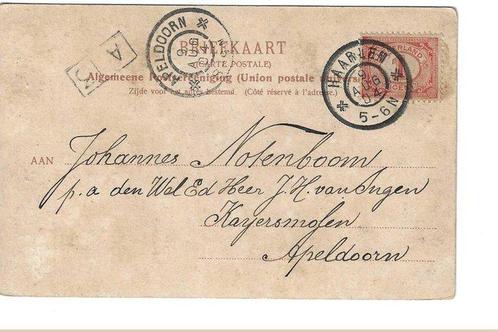 A
APELDOORN
BRIEFKAART
(CARTE POSTALE)
Algemeene Postvereeniging (Union postale
Zijde voor het adres bestemd. (Côté réservé à l'adresse.)
HAARLEM
5-6N
AAN Johannes Notenboom
p.a den Wel Ed Heer J.H. van Ingen
Kayersmolen
Apeldoorn